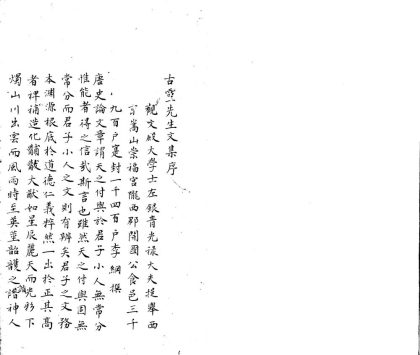 古靈先生文集序
觀文殿大學士左銀青光祿大夫提舉西
京嵩山崇福宮隴西郡開國公食邑三千
九百戶實封一千四百戶李綱撰
唐史論文章謂天之付與於君子小人無常分
惟能者得之信哉斯言也雖然天之付與固無
常分而君子小人之文則有辨矣君子之文務
本淵源根底於道德仁義粹然一出於正其高
者裨補造化黼黻大猷如星辰麗天而光彩下
燭山川出雲而風雨時至英莖韶頀之諧神人